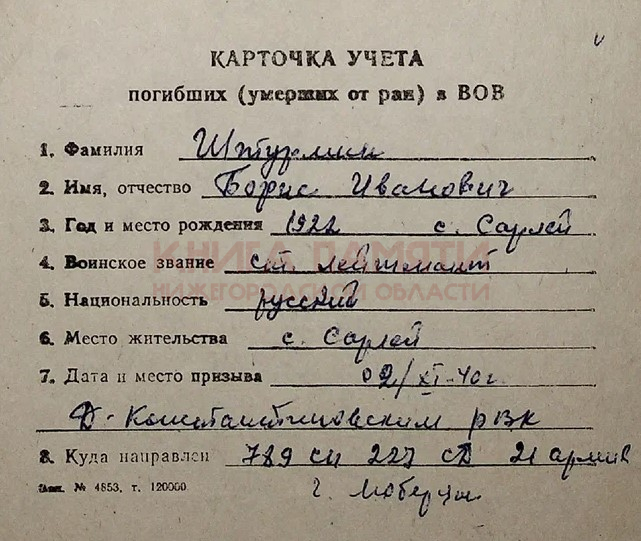 КАРТОЧКА УЧЕТА
погибших (умерших от ран) в ВОВ
1. Фамилия Штурмин
2. Имя, отчество Борис Иванович
3. Год и место рождения 1922 с. Сарлей
КНИГА ПАМЯТИ
4. Воинское звание ст. лейтенант
НИЖЕГОРОДСКОЙ ОБЛАСТИ
5. Национальность русский
6. Место жительства с. Сарлей
7. Дата и место призыва 02/XI-40г.
Д-Константиновским РВК
8. Куда направлен 789 сп 227 сд 21 армии
Зак. № 4853, т. 120000
г.